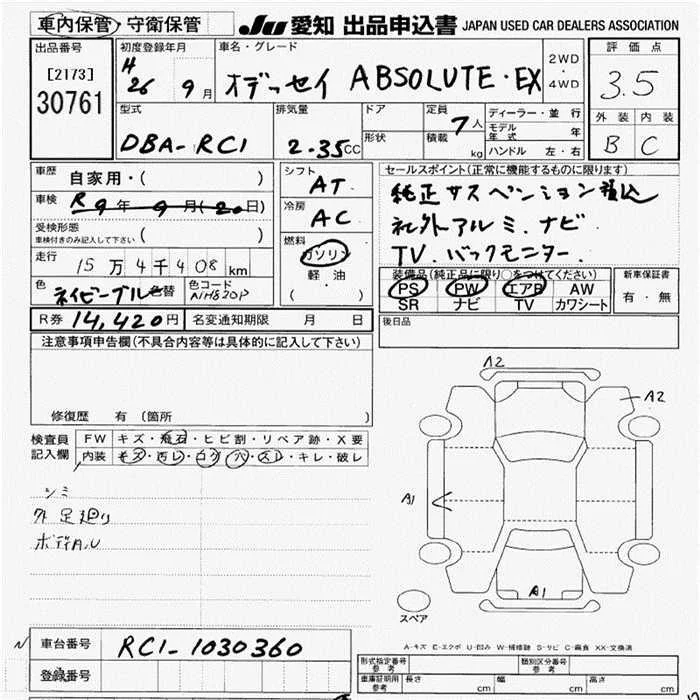 車内保管・守衛保管 JU 愛知 出品申込書 JAPAN USED CAR DEALERS ASSOCIATION
出品番号
[2173]
30761
初度登録年月
H 26 9月
車名・グレード
オデッセイ ABSOLUTE・EX
2WD
・
4WD
評価点
3.5
外装 内装
B C
型式
DBA-RC1
排気量
2.35cc
ドア
形状
定員 7人
積載 kg
ディーラー・並行
モデル年式 年
ハンドル 左・右
車歴 自家用・( )
車検 R9年9月(20日)
受検形態
車検付きのみ記入して下さい ( )
走行 15万4千408km
色 ネイビーブルー 色替 色コード
シフト AT
冷房 AC
燃料
ガソリン
軽油
( )
セールスポイント(正常に機能するものに限ります)
純正サスペンション積込
社外アルミ.ナビ
TV.バックモニター.
装備品(純正品に限り○をつけてください)
PS PW エアB AW
SR ナビ TV カワシート
新車保証書
有・無
R券 14,420円 名変通知期限 月 日
後日品
注意事項申告欄(不具合内容等は具体的に記入して下さい)
修復歴 有(箇所 )
検査員記入欄
FW キズ・飛石・ヒビ割・リペア跡・X要
内装 キズ・汚レ・コゲ・穴・スレ・キレ・破レ
シミ
外足廻り
ボディA.U
A2
A2
A1
A1
スペア
A-キズ E-エクボ U-凹み W-補修跡 S-サビ C-腐食 XX-交換済
車台番号 RC1-1030360
登録番号
形式指定番号 参考
類別区分番号 参考
車庫証明用 参考 長さ cm 幅 cm 高さ cm